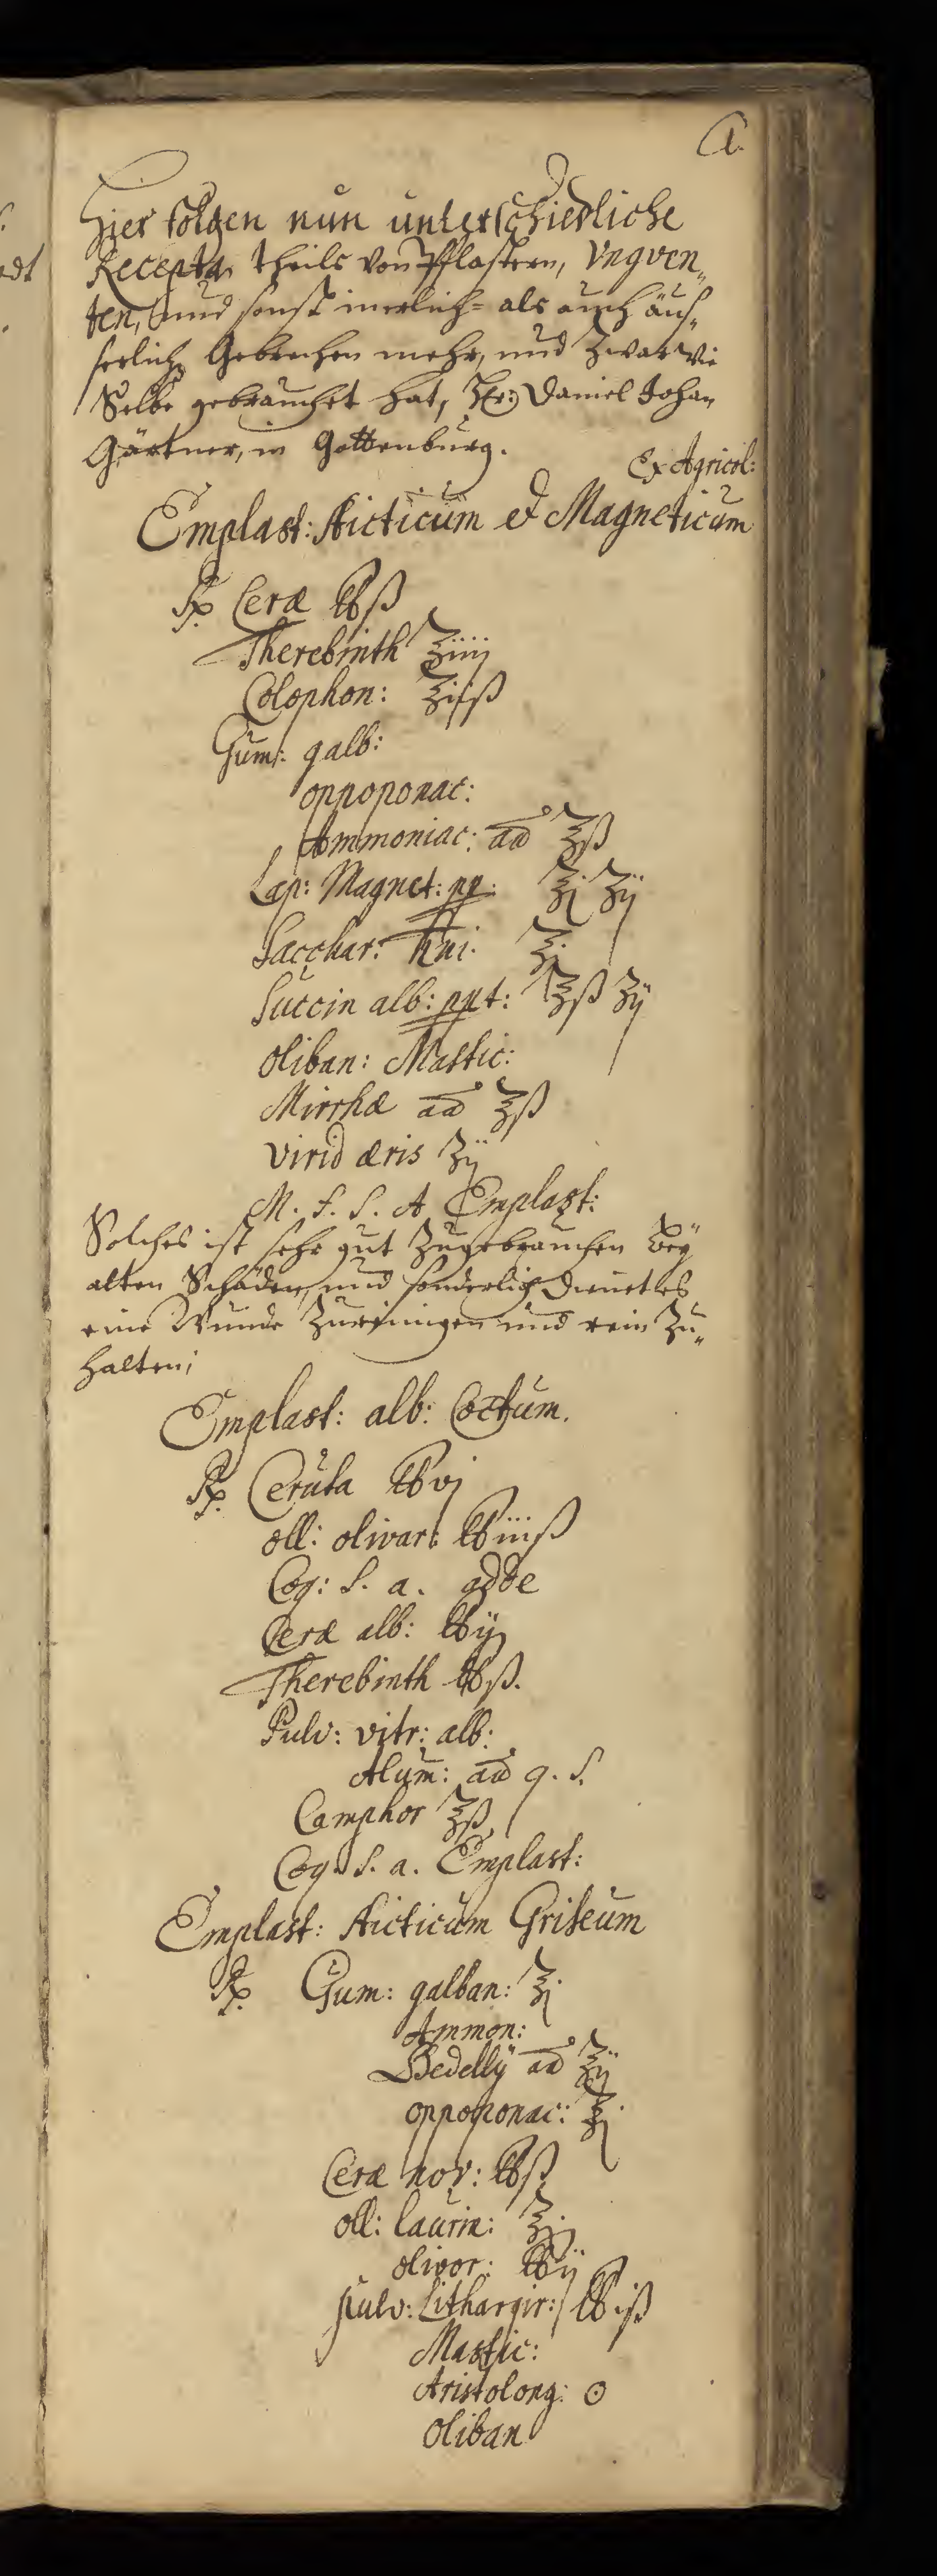 A.
Hier folgen nun unterschiedliche
Recepta, theils von Pflastern, Ungven„
ten, und sonst innerlich- als auch äus„
serliche Gebrechen mehr, und Zwar wie
Selbe gebrauchet hat, Hr: Daniel Johan
Gärtner, in Gottenburg.
Ex Agricol:
Emplast: sticticum et Magneticum
℞ Ceræ ℔ß
Therebinth ℥iiij
Colophon: ℥ijß
Gum: galb:
oppoponac:
Ammoniac: aa ℥ß
Lap: Magnet: pp: ℥j ʒij
Sacchar: ♄ni: ℥j
Succin alb: ppt: ℥ß ʒij
oliban: Mastic:
Mirrhæ aa ℥ß
virid æris ʒij
M. f. S. A Emplast:
Solches ist sehr gut Zugebrauchen beÿ
alten Schäden, und sonderlich dienet es
eine Wunde Zureinigen und rein Zu„
halten;
Emplast: alb: Coctum.
℞ Cerusa ℔vj
oll: olivar: ℔iiiß
Coq: S. a. adde
Ceræ alb: ℔ij
Therebinth ℔ß.
Pulv: vitr: alb:
Alum: aa q. S.
Camphor ℥ß
Coq. S. a. Emplast:
Emplast: sticticum Griseum
℞ Gum: galban: ℥j
Ammon:
Bedellÿ aa ℥ij
oppoponac: ℥j
Ceræ nov: ℔ß
oll: laurin: ℥j
olivor: ℔ij
pulv: Lithargir: ℔iß
Mastic:
Aristolong: ⊙
oliban